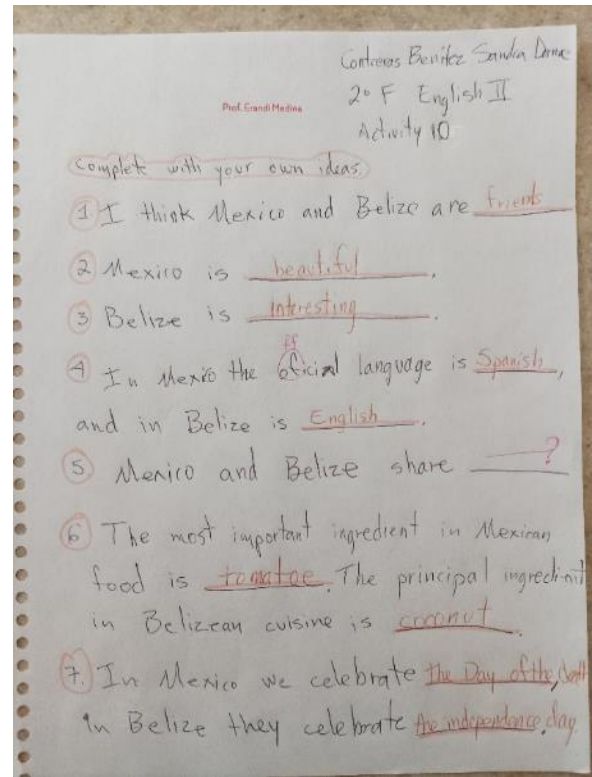 Contreras Benítez Sandra
2° F English II
Prof. Erandi Medina
Activity 10
Complete with your own ideas.
1 I think Mexico and Belize are friends
2 Mexico is beautiful.
3 Belize is interesting.
ff
4 In Mexico the oficial language is Spanish,
and in Belize is English.
5 Mexico and Belize share ?
6 The most important ingredient in Mexican
food is tomatoe. The principal ingredient
in Belizean cuisine is coconut.
7. In Mexico we celebrate the Day of the,
in Belize they celebrate the independence day.